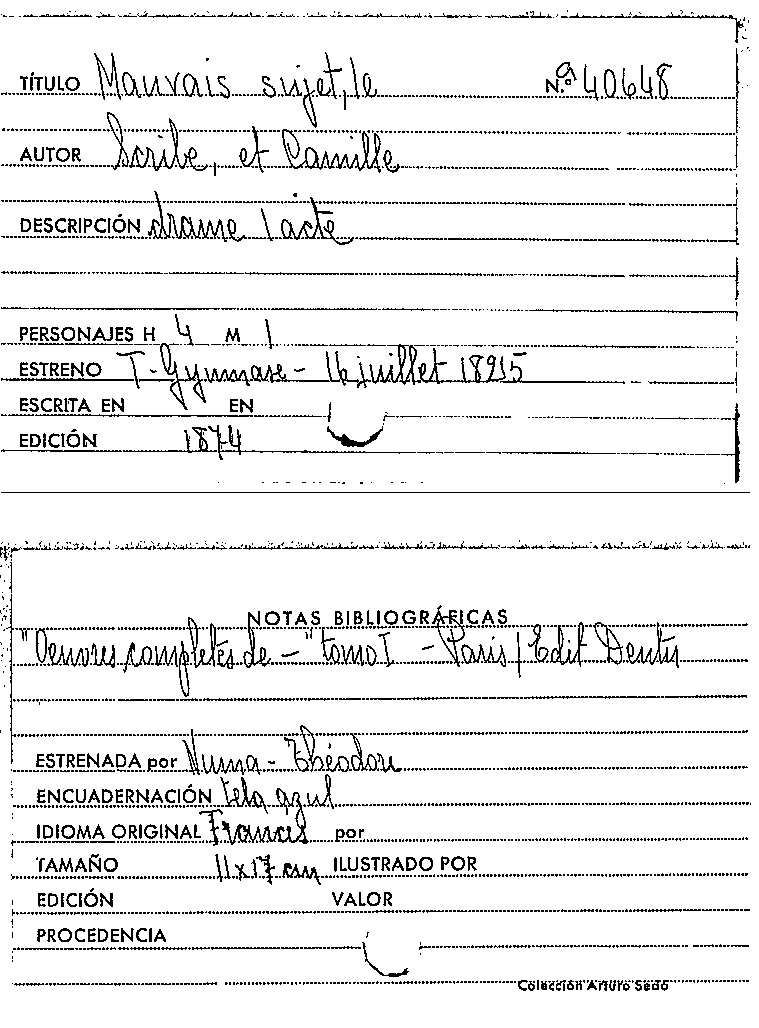 TÍTULO Mauvais sujet, le N.º 40648
AUTOR Scribe, et Camille
DESCRIPCIÓN drame 1 acte
PERSONAJES H 4 M 1
ESTRENO T- Gymnase - 16 juillet 1825
ESCRITA EN EN
EDICIÓN 1874
NOTAS BIBLIOGRÁFICAS
"Oeuvres completes de - " tomo I - Paris / Edit Dentu
ESTRENADA por Numa - Théodore
ENCUADERNACIÓN tela azul
IDIOMA ORIGINAL Frances por
TAMAÑO 11x17 cm ILUSTRADO POR
EDICIÓN VALOR
PROCEDENCIA
Colección Arturo Sedó